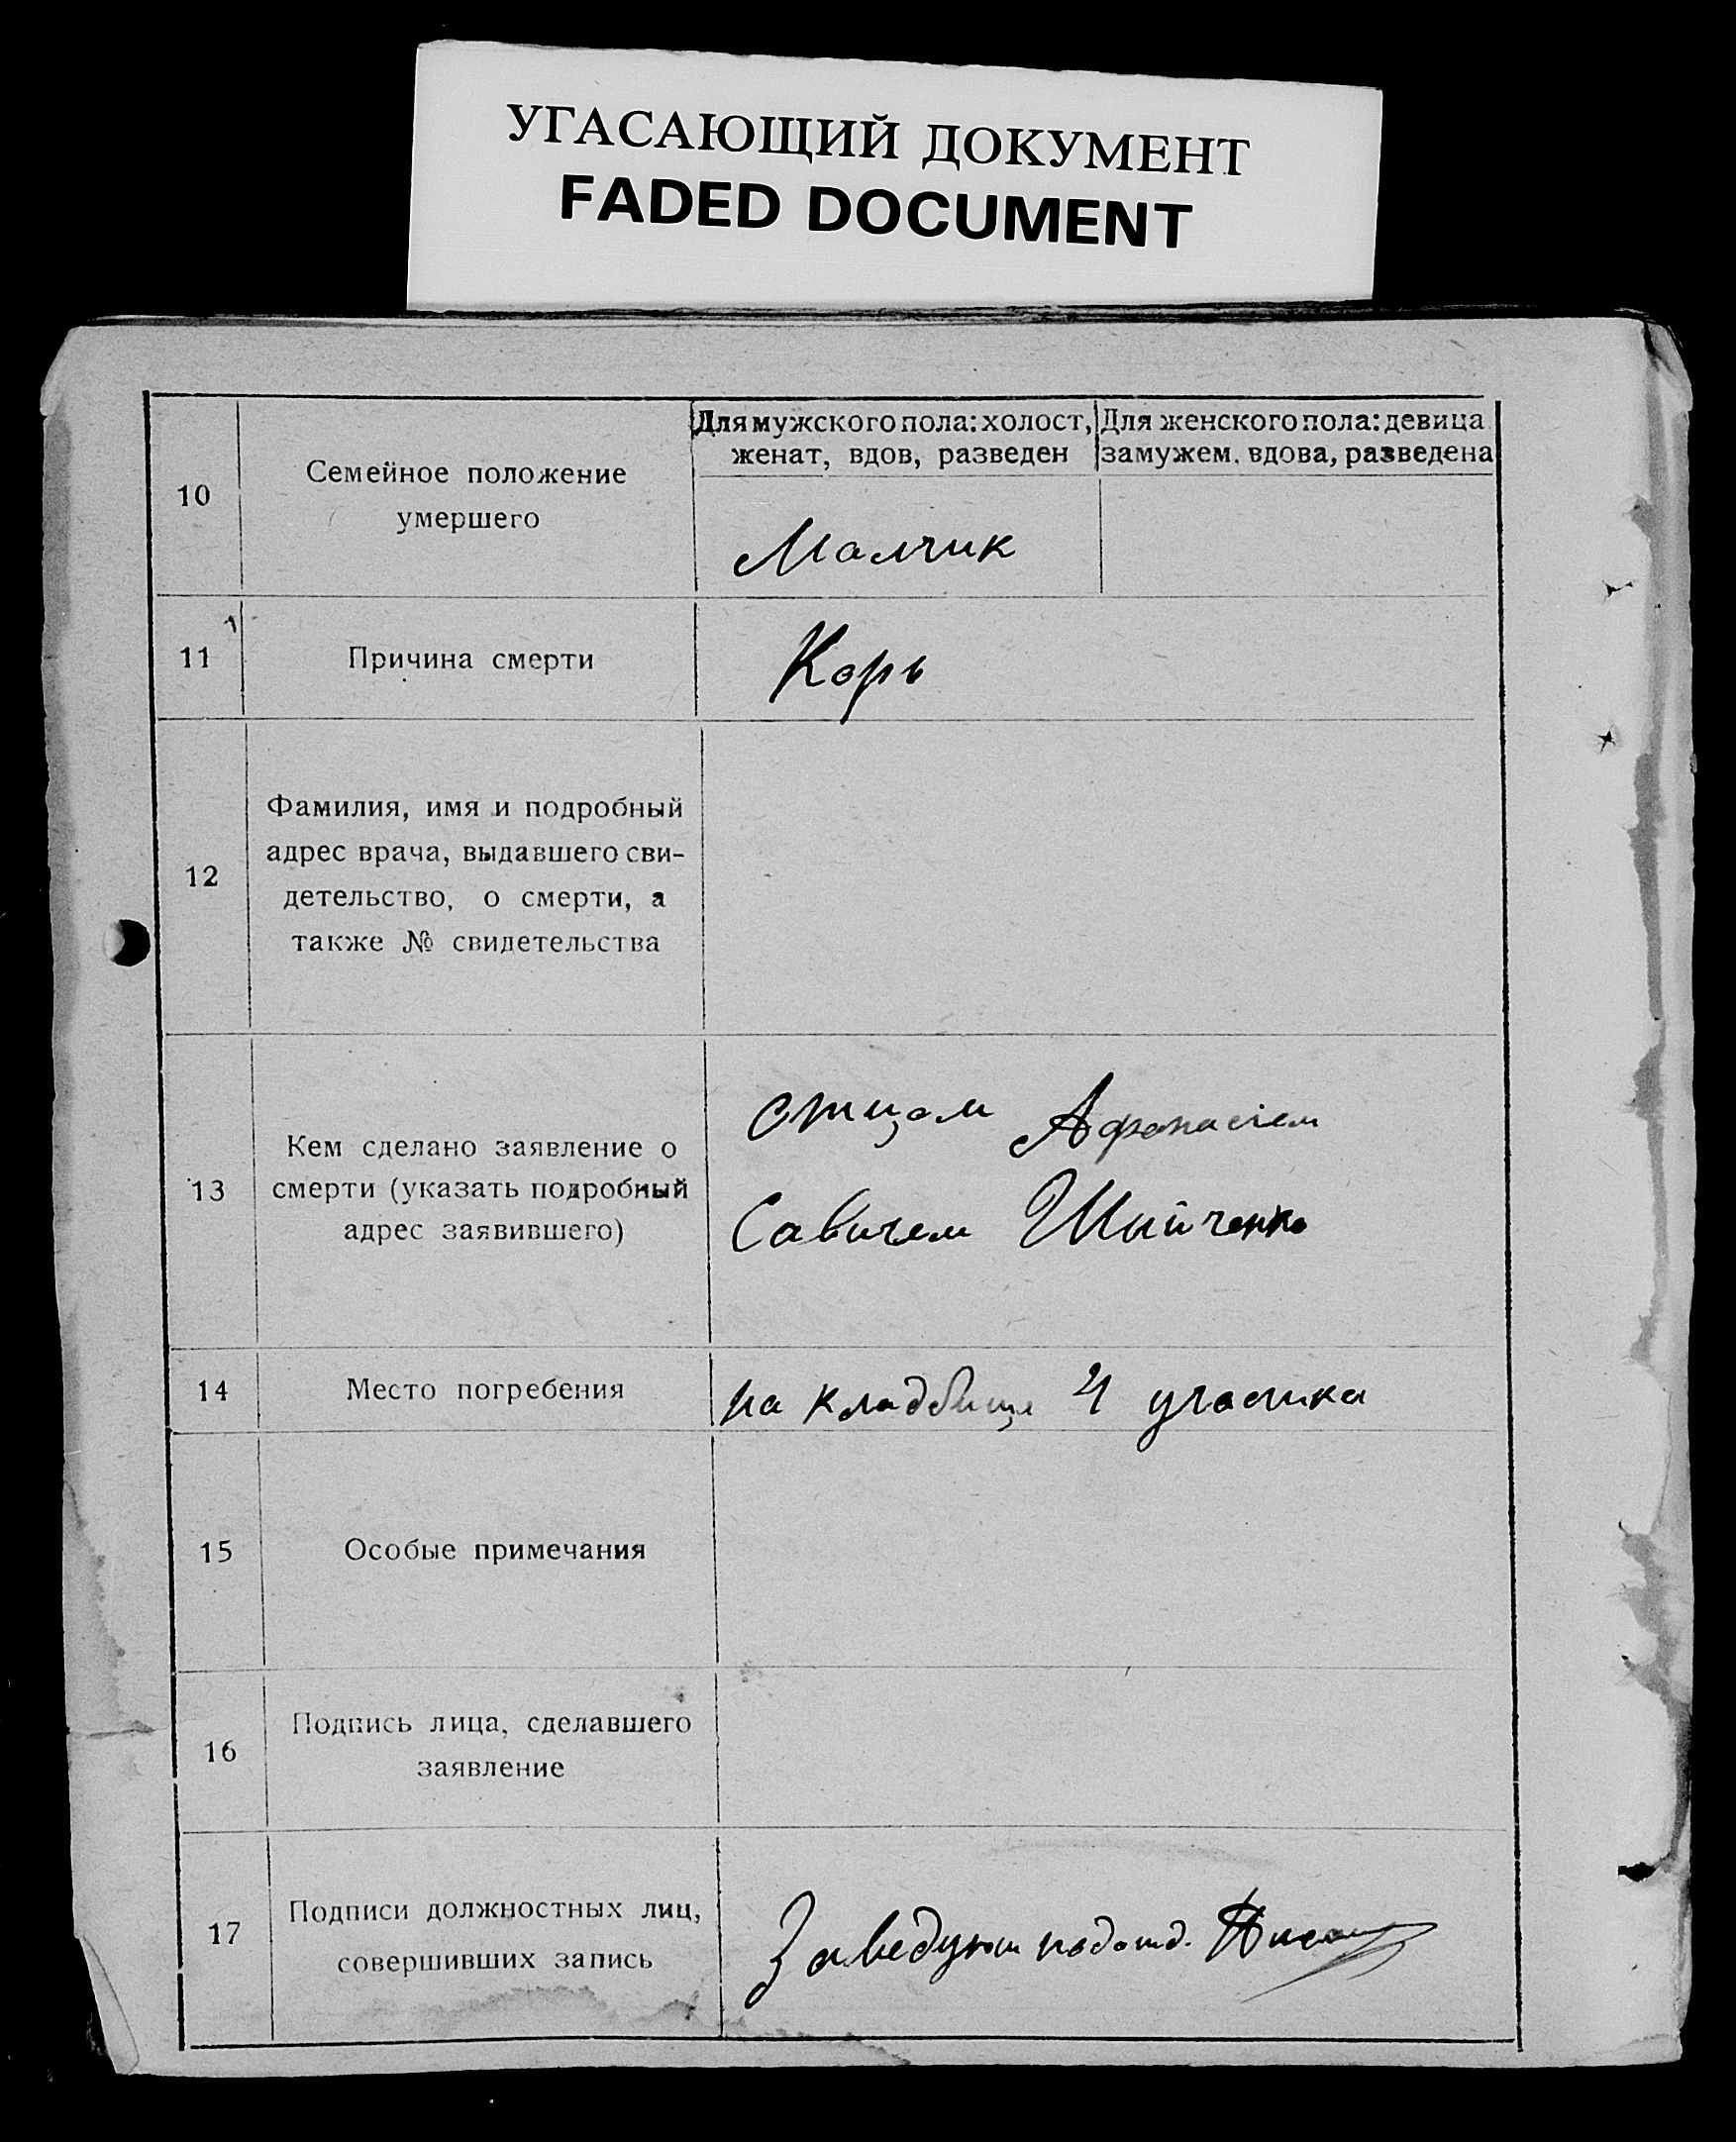 УГАСАЮЩИЙ ДОКУМЕНТ
FADED DOCUMENT
10
Семейное положение
умершего
Для мужского пола: холост,
женат, вдов, разведен
Для женского пола: девица
замужем. вдова, разведена
Малчик
11
Причина смерти
Корь
12
Фамилия, имя и подробный
адрес врача, выдавшего сви-
детельство, о смерти, а
также № свидетельства
13
Кем сделано заявление о
смерти (указать подробный
адрес заявившего)
отцом Афонасіем
Савичем Шийченко
14
Место погребения
на кладбище 4 участка
15
Особые примечания
16
Подпись лица, сделавшего
заявление
17
Подписи должностных лиц,
совершивших запись
Заведующ подотд.